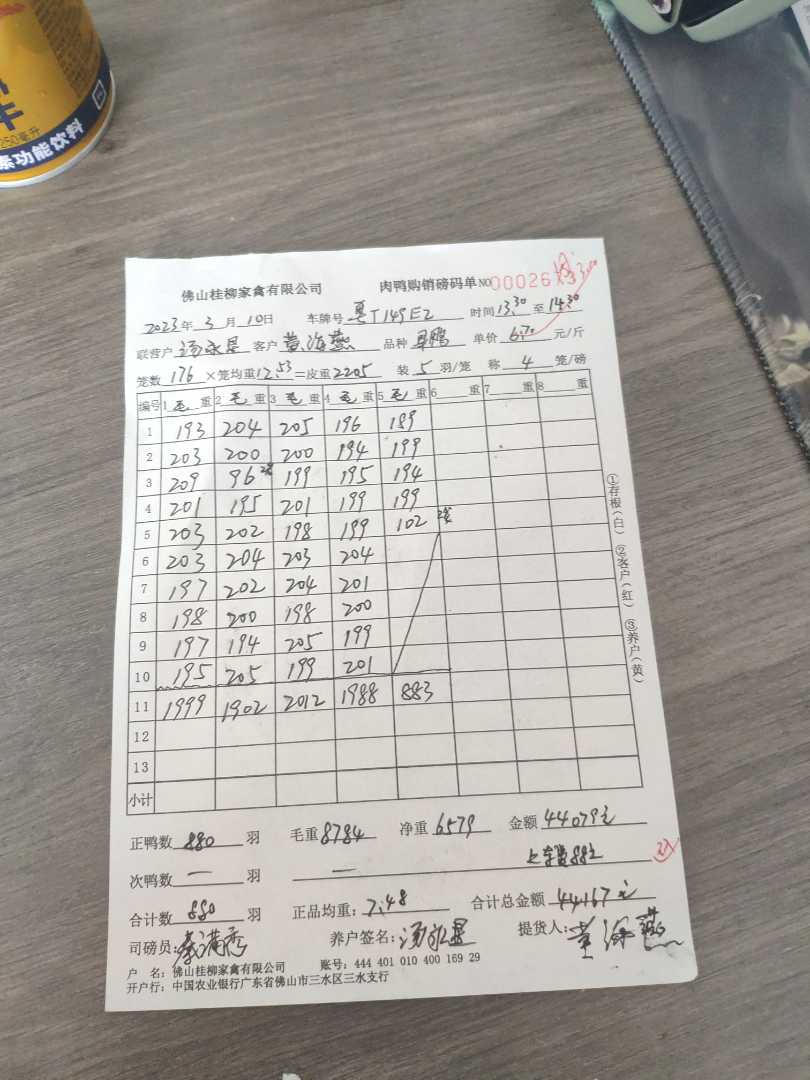 250毫升
素功能饮料
佛山桂柳家禽有限公司 肉鸭购销磅码单 NO 00026
2023年 3月 10日 车牌号 粤T149E2 时间 13:30 至 14:30
联营户 汤永星 客户 黄海燕 品种 单价 6.70 元/斤
笼数 176 ×笼均重 12.53 =皮重 2205 装 5 羽/笼 称 4 笼/磅
编号 1 毛 重 2 毛 重 3 毛 重 4 毛 重 5 毛 重 6 重 7 重 8 重
1 193 204 205 196 189
2 203 200 200 194 199
3 209 96 2笼 199 195 194
4 201 195 201 199 199
5 203 202 198 199 102 2笼
6 203 204 203 204
7 197 202 204 201
8 198 200 198 200
9 197 194 205 199
10 195 205 199 201
11 1999 1902 2012 1988 883
12
13
小计
①存根(白) ②客户(红) ③养户(黄)
正鸭数 880 羽 毛重 8784 净重 6579 金额 44079元
上车费88元
次鸭数 — 羽 —
合计数 880 羽 正品均重: 7.48 合计总金额 44167元
司磅员: 养户签名: 汤永星 提货人: 黄海燕
户 名: 佛山桂柳家禽有限公司 账号: 444 401 010 400 169 29
开户行: 中国农业银行广东省佛山市三水区三水支行